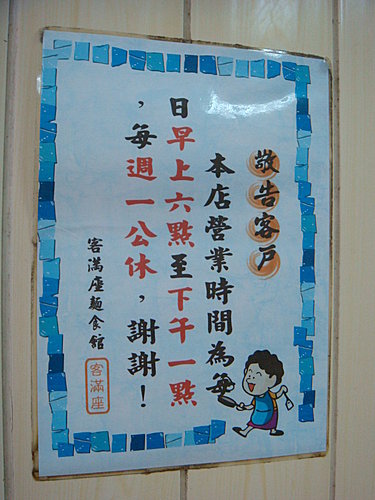 敬告客戶
本店營業時間為每
日早上六點至下午一點
，每週一公休，謝謝！
客滿座麵食館
客滿座